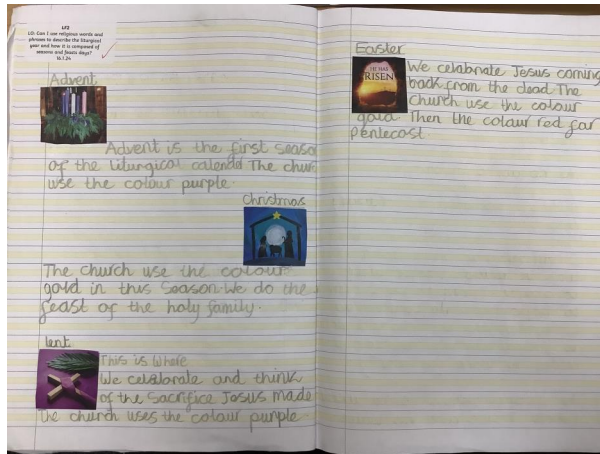 LF2
LO: Can I use religious words and
phrases to describe the liturgical
year and how it is composed of
seasons and feasts days?
16.1.24
Advent
Advent is the first seaso
of the liturgical calender The chur
use the colour purple.
Christmas
The church use the colour
gold in this season. We do the
feast of the holy family.
lent
This is where
We celebrate and think
of the sacrifice Jesus made
the church uses the colour purple.
Easter
HE HAS
RISEN
We celabrate Jesus coming
back from the dead. The
church use the colour
gold. Then the colour red for
Pentecost